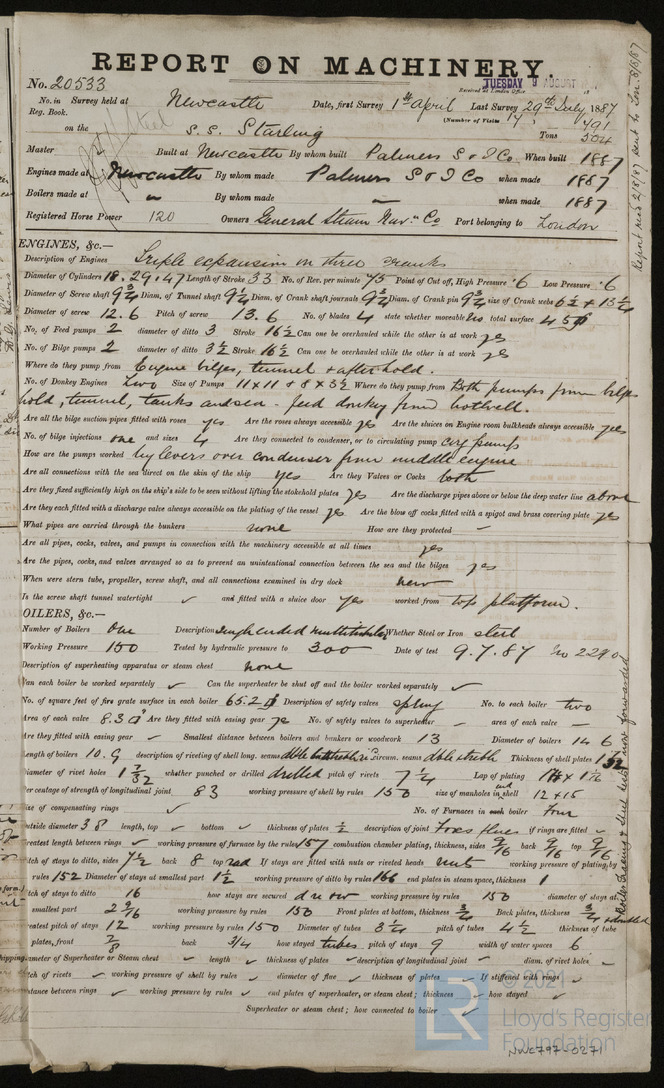 REPORT ON MACHINERY.
No. 20533
TUESDAY 9 AUGUST
Received at London Office
No. in Reg. Book. Survey held at Newcastle Date, first Survey 1st April Last Survey 29th July 1887
(Number of Visits 17)
on the S.S. Starling Tons 491 304
Master Built at Newcastle By whom built Palmers S & I Co When built 1887
Engines made at Newcastle By whom made Palmers S & I Co when made 1887
Boilers made at " By whom made " when made 1887
Registered Horse Power 120 Owners General Steam Nav. Co Port belonging to London
ENGINES, &c.—
Description of Engines Triple expansion on three cranks
Diameter of Cylinders 18.29.47 Length of Stroke 33 No. of Rev. per minute 75 Point of Cut off, High Pressure .6 Low Pressure .6
Diameter of Screw shaft 9 3/4 Diam. of Tunnel shaft 9 1/4 Diam. of Crank shaft journals 9 3/4 Diam. of Crank pin 9 3/4 size of Crank webs 6 1/2 x 13 1/4
Diameter of screw 12.6 Pitch of screw 13.6 No. of blades 4 state whether moveable no total surface 45
No. of Feed pumps 2 diameter of ditto 3 Stroke 16 1/2 Can one be overhauled while the other is at work yes
No. of Bilge pumps 2 diameter of ditto 3 1/2 Stroke 16 1/2 Can one be overhauled while the other is at work yes
Where do they pump from Engine bilges, tunnel & after hold.
No. of Donkey Engines Two Size of Pumps 11 x 11 & 8 x 3 1/2 Where do they pump from Both pumps from bilges
hold, tunnel, tanks and sea - feed donkey from hotwell.
Are all the bilge suction pipes fitted with roses yes Are the roses always accessible yes Are the sluices on Engine room bulkheads always accessible yes
No. of bilge injections one and sizes 4 Are they connected to condenser, or to circulating pump cirg pump
How are the pumps worked by levers over condenser from middle engine
Are all connections with the sea direct on the skin of the ship yes Are they Valves or Cocks both
Are they fixed sufficiently high on the ship's side to be seen without lifting the stokehold plates yes Are the discharge pipes above or below the deep water line above
Are they each fitted with a discharge valve always accessible on the plating of the vessel yes Are the blow off cocks fitted with a spigot and brass covering plate yes
What pipes are carried through the bunkers none How are they protected —
Are all pipes, cocks, valves, and pumps in connection with the machinery accessible at all times yes
Are the pipes, cocks, and valves arranged so as to prevent an unintentional connection between the sea and the bilges yes
When were stern tube, propeller, screw shaft, and all connections examined in dry dock new
Is the screw shaft tunnel watertight ✓ and fitted with a sluice door yes worked from top platform.
OILERS, &c.—
Number of Boilers One Description single ended multitubular Whether Steel or Iron steel
Working Pressure 150 Tested by hydraulic pressure to 300 Date of test 9.7.87 No 2290
Description of superheating apparatus or steam chest none
Can each boiler be worked separately ✓ Can the superheater be shut off and the boiler worked separately ✓
No. of square feet of fire grate surface in each boiler 65.2 Description of safety valves spring No. to each boiler two
Area of each valve 8.3 Are they fitted with easing gear yes No. of safety valves to superheater — area of each valve —
Are they fitted with easing gear — Smallest distance between boilers and bunkers or woodwork 13 Diameter of boilers 14 6
Length of boilers 10.9 description of riveting of shell long. seams dble butt treble riv. Circum. seams dble & treble Thickness of shell plates
Diameter of rivet holes 1 7/32 whether punched or drilled drilled pitch of rivets 7 1/4 Lap of plating
Per centage of strength of longitudinal joint 83 working pressure of shell by rules 150 size of manholes in shell 12 x 15
size of compensating rings ✓ No. of Furnaces in each boiler Four
outside diameter 38 length, top ✓ bottom ✓ thickness of plates 1/2 description of joint Foxs flues if rings are fitted ✓
greatest length between rings ✓ working pressure of furnace by the rules 157 combustion chamber plating, thickness, sides 9/16 back 9/16 top 9/16
pitch of stays to ditto, sides 7 1/2 back 8 top rad If stays are fitted with nuts or riveted heads nuts working pressure of plating by
rules 152 Diameter of stays at smallest part 1 1/2 working pressure of ditto by rules 166 end plates in steam space, thickness 1
pitch of stays to ditto 16 how stays are secured d n & w working pressure by rules 150 diameter of stays at
smallest part 2 9/16 working pressure by rules 150 Front plates at bottom, thickness 3/4 Back plates, thickness 3/4 & doubled
greatest pitch of stays 12 working pressure by rules 150 Diameter of tubes 3 1/4 pitch of tubes 4 1/2 thickness of tube
plates, front 7/8 back 3/4 how stayed tubes pitch of stays 9 width of water spaces 6
diameter of Superheater or Steam chest ✓ length ✓ thickness of plates ✓ description of longitudinal joint ✓ diam. of rivet holes ✓
pitch of rivets ✓ working pressure of shell by rules ✓ diameter of flue ✓ thickness of plates ✓ If stiffened with rings ✓
distance between rings ✓ working pressure by rules ✓ end plates of superheater, or steam chest; thickness ✓ how stayed ✓
Superheater or steam chest; how connected to boiler ✓
Report recd 2/8/87 sent to Lon. 8/8/87
now forwarded
© 2021
Lloyd's Register
Foundation
LR
NWC797-0271